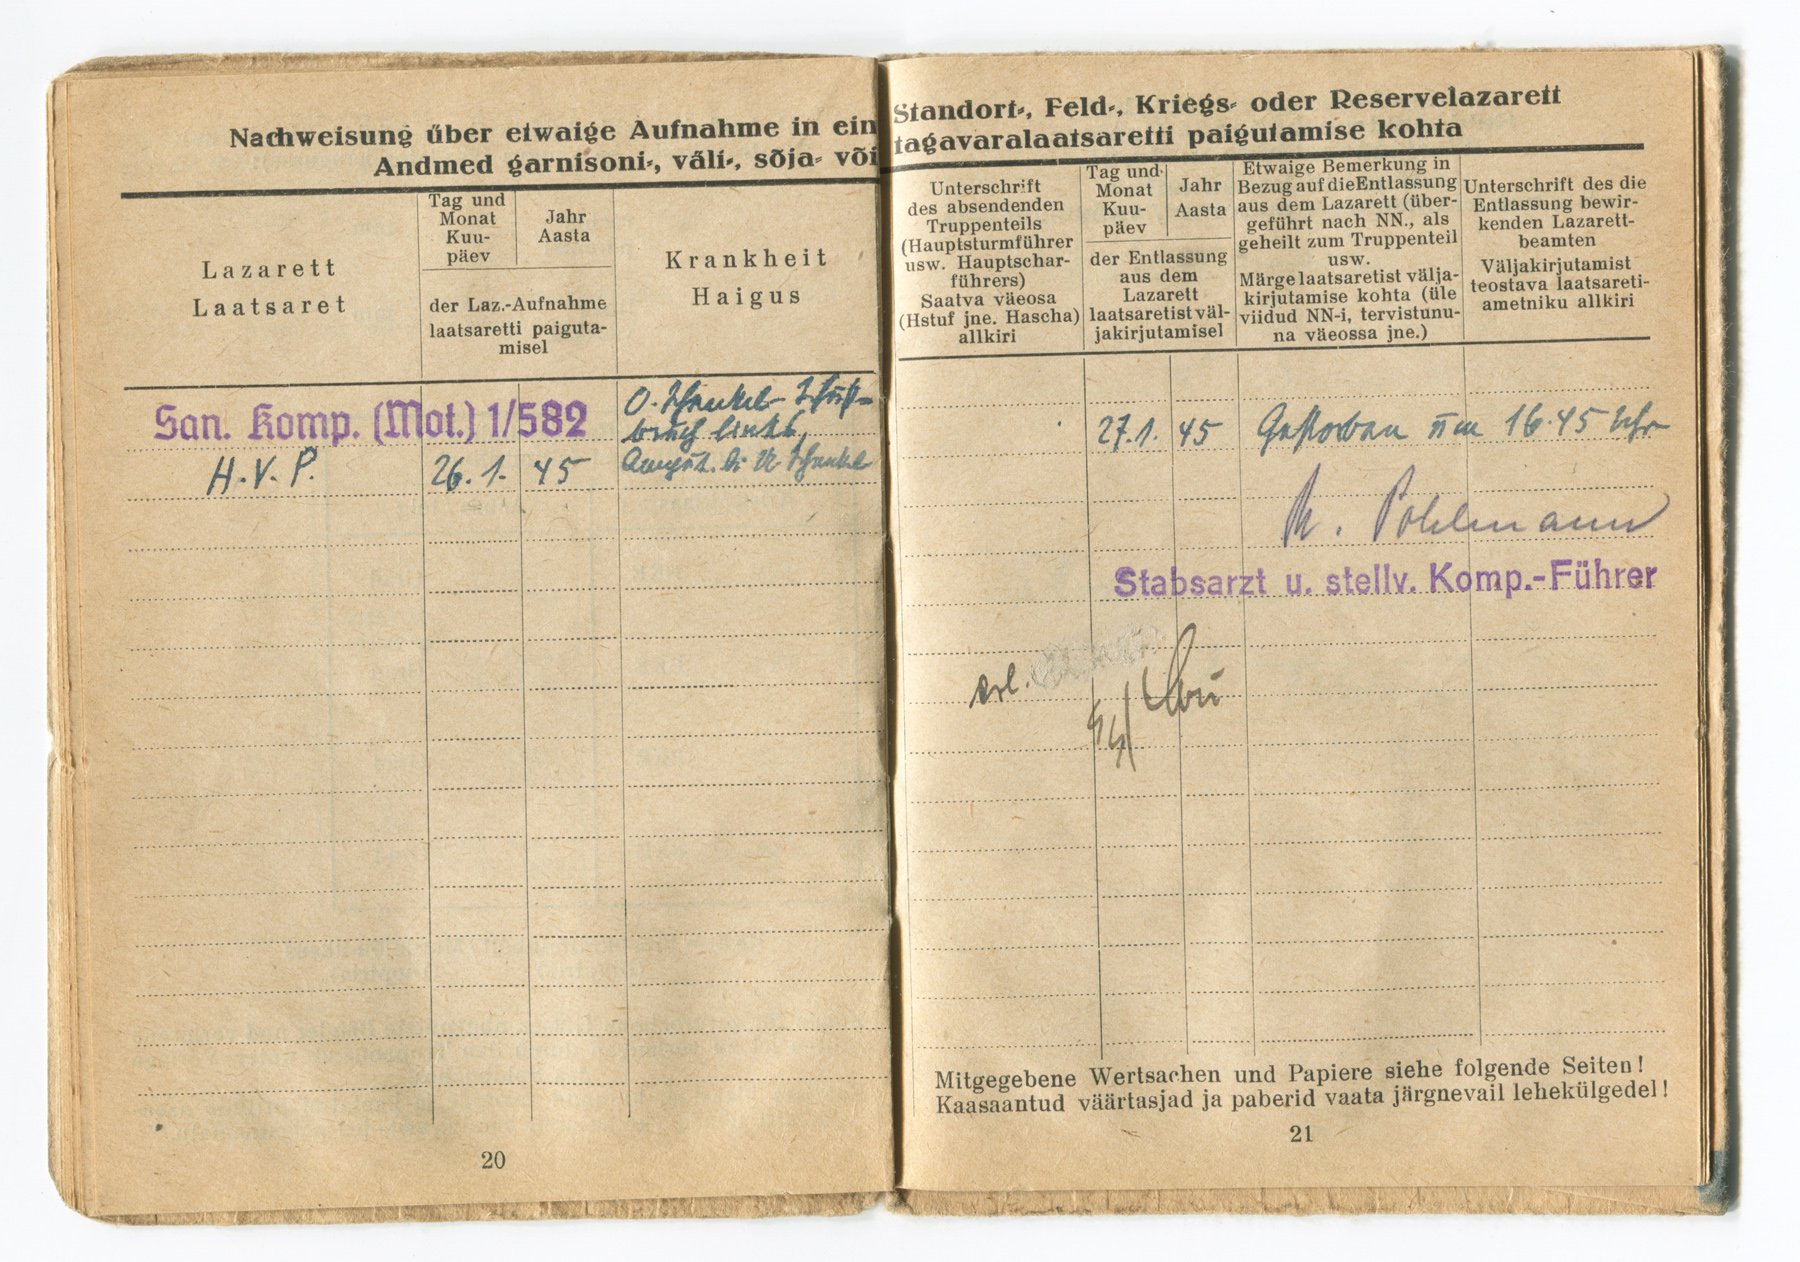 Nachweisung über etwaige Aufnahme in ein
Andmed garnisoni-, väli-, sõja- või
Lazarett
Laatsaret
Tag und
Monat
Kuu-
päev
Jahr
Aasta
der Laz.-Aufnahme
laatsaretti paiguta-
misel
Krankheit
Haigus
San. Komp. (Mot.) 1/582
H.V.P.
26.1.
45
O. Schenkel-Schuß-
bruch links,
Amput. li. U Schenkel
20
Standort-, Feld-, Kriegs- oder Reservelazarett
tagavaralaatsaretti paigutamise kohta
Unterschrift
des absendenden
Truppenteils
(Hauptsturmführer
usw. Hauptschar-
führers)
Saatva väeosa
(Hstuf jne. Hascha)
allkiri
Tag und
Monat
Kuu-
päev
Jahr
Aasta
der Entlassung
aus dem
Lazarett
laatsaretist väl-
jakirjutamisel
Etwaige Bemerkung in
Bezug auf die Entlassung
aus dem Lazarett (über-
geführt nach NN., als
geheilt zum Truppenteil
usw.
Märge laatsaretist välja-
kirjutamise kohta (üle
viidud NN-i, tervistunu-
na väeossa jne.)
Unterschrift des die
Entlassung bewir-
kenden Lazarett-
beamten
Väljakirjutamist
teostava laatsareti-
ametniku allkiri
27.1.
45
Gestorben um 16.45 Uhr
Pohlmann
Stabsarzt u. stellv. Komp.-Führer
erl.
Mitgegebene Wertsachen und Papiere siehe folgende Seiten!
Kaasaantud väärtasjad ja paberid vaata järgnevail lehekülgedel!
21